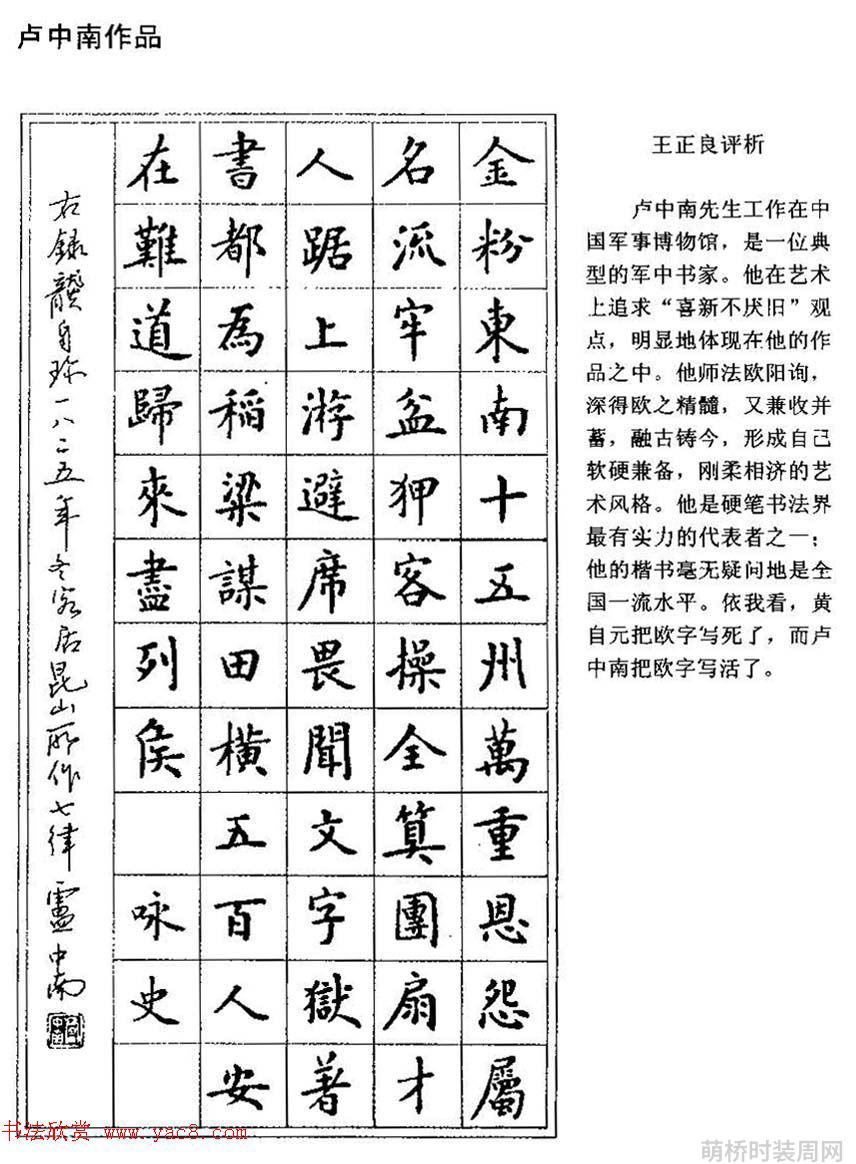 卢中南作品
金粉東南十五州萬重恩怨屬
名流牢盆狎客操全筭團扇才
人踞上游避席畏聞文字獄著
書都為稻粱謀田橫五百人安
在難道歸來盡列侯 咏史
右錄龔自珍一八二五年冬客居昆山所作七律 盧中南
王正良评析
卢中南先生工作在中
国军事博物馆，是一位典
型的军中书家。他在艺术
上追求“喜新不厌旧”观
点，明显地体现在他的作
品之中。他师法欧阳询，
深得欧之精髓，又兼收并
蓄，融古铸今，形成自己
软硬兼备，刚柔相济的艺
术风格。他是硬笔书法界
最有实力的代表者之一；
他的楷书毫无疑问地是全
国一流水平。依我看，黄
自元把欧字写死了，而卢
中南把欧字写活了。
书法欣赏 www.yac8.com
萌桥时装周网